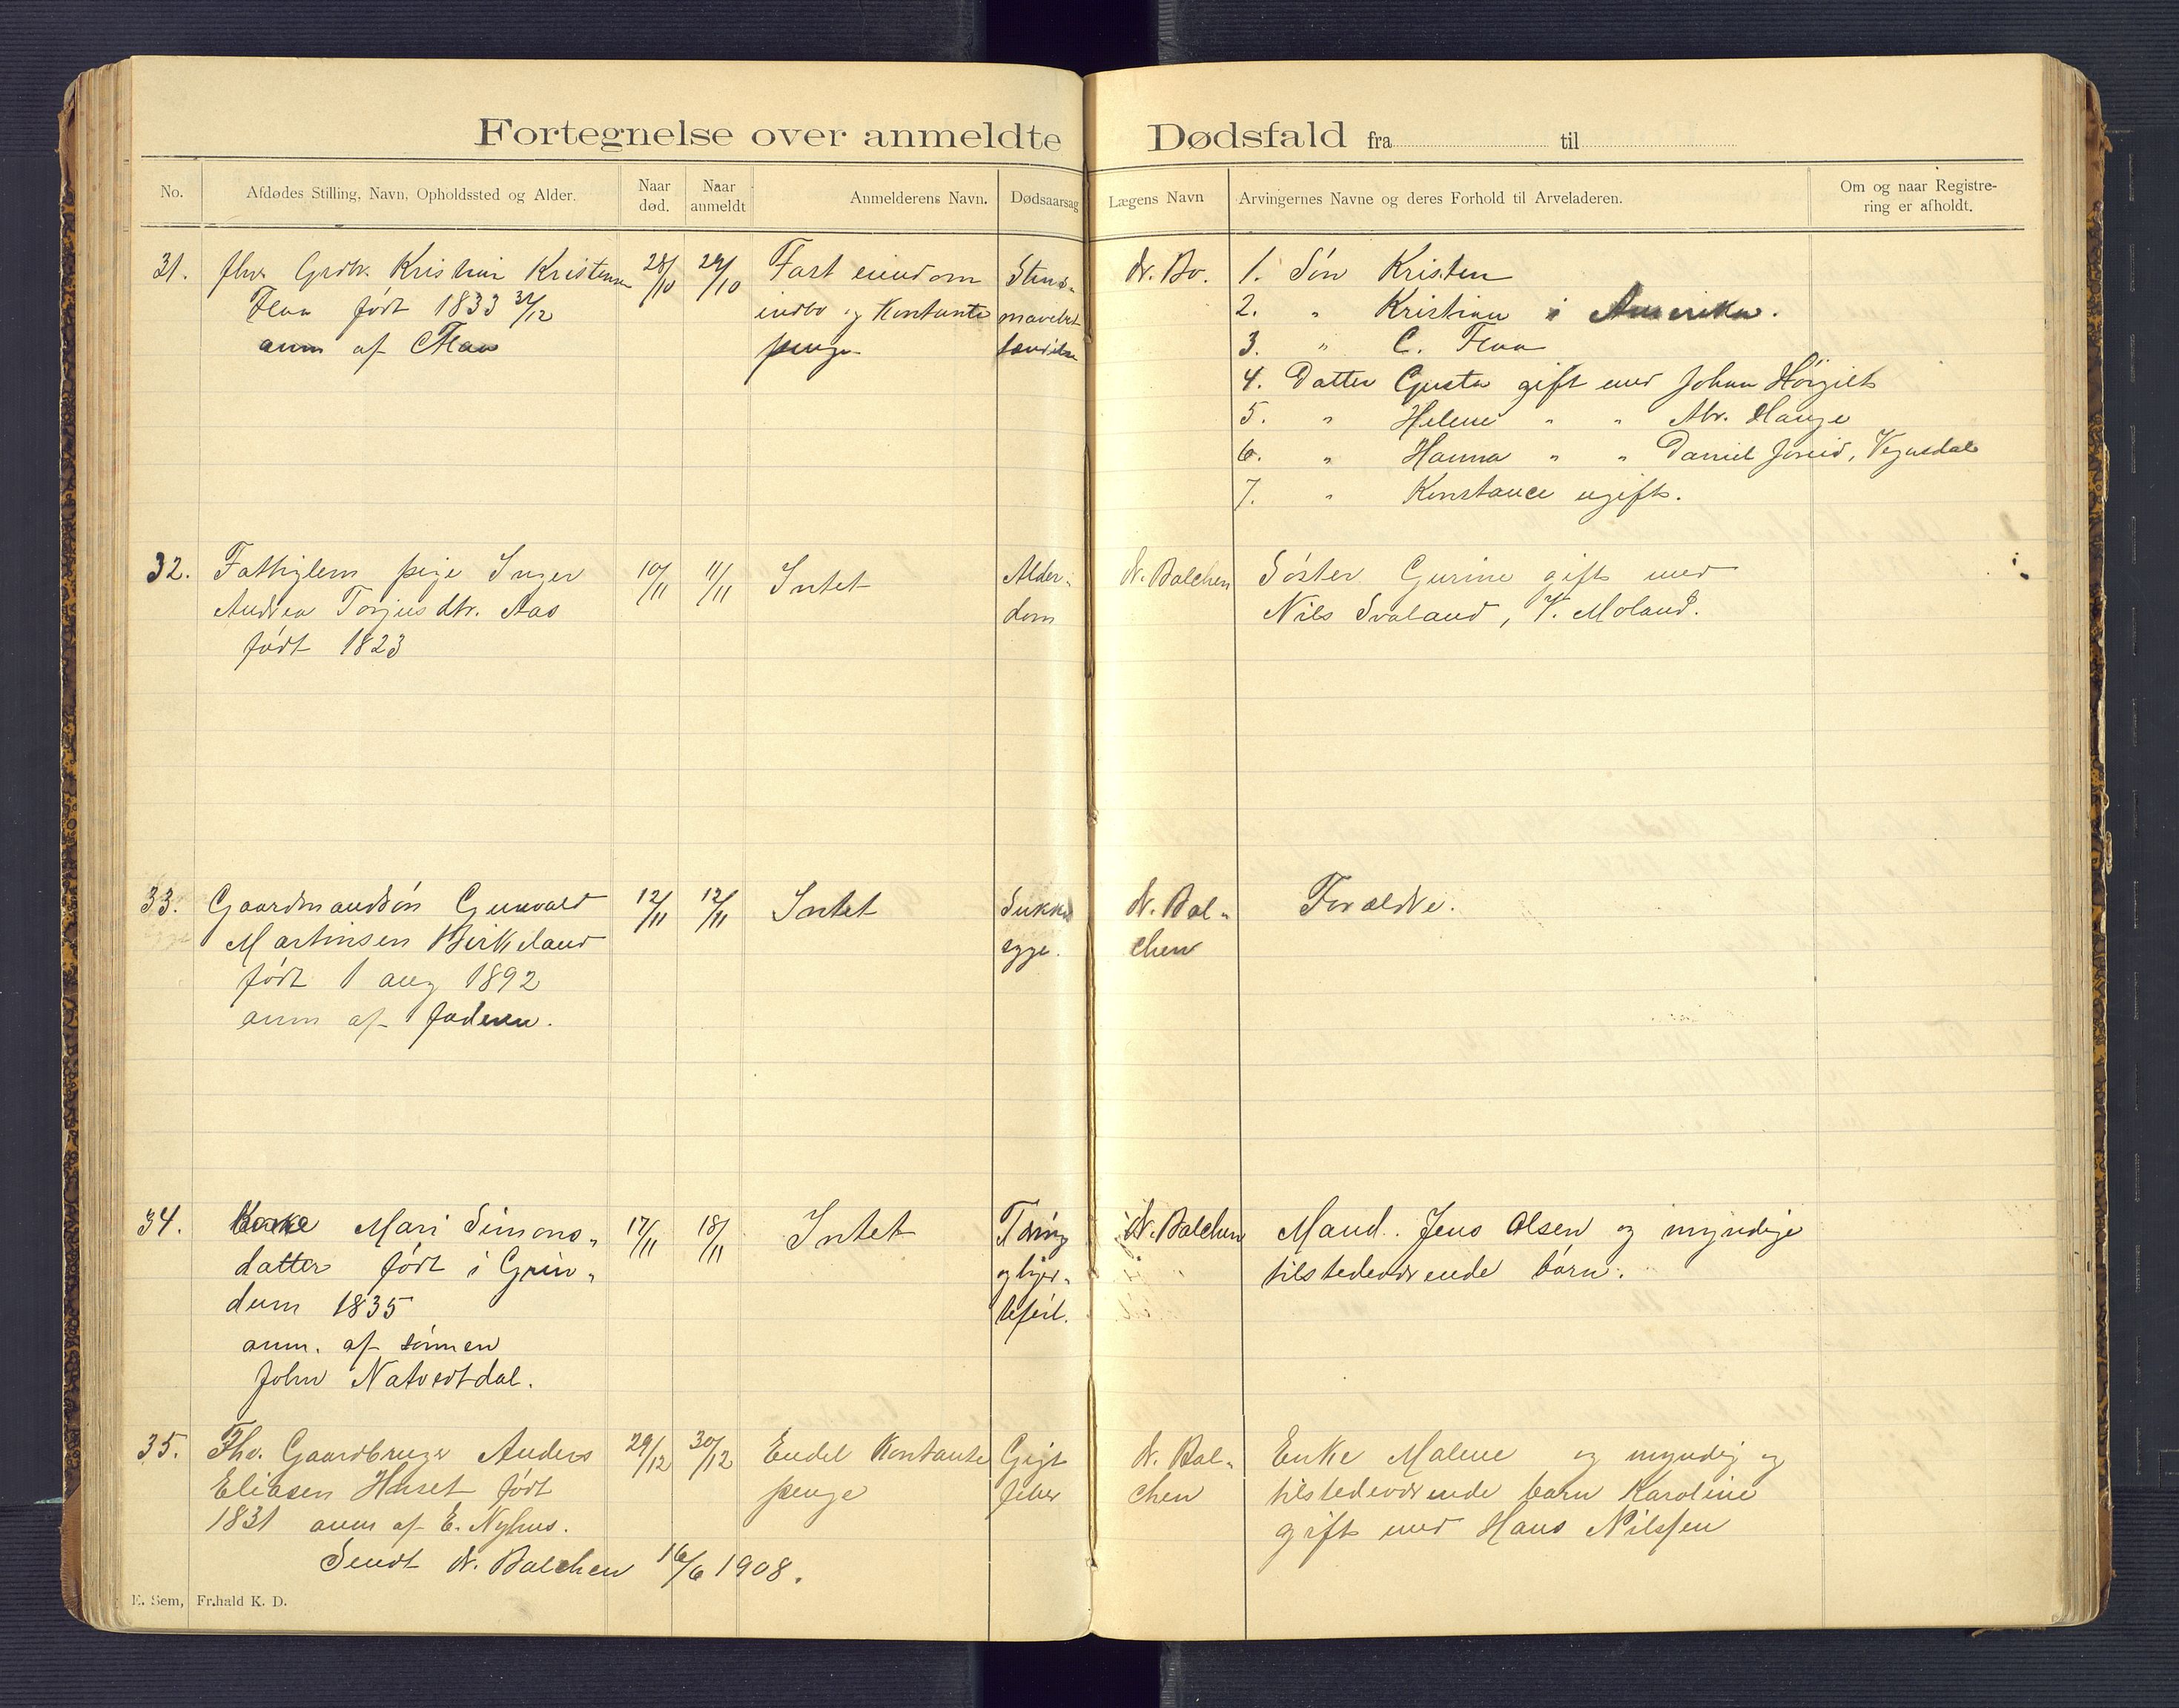 Fortegnelse over anmeldte Dødsfald fra til
No.
Afdødes Stilling, Navn, Opholdssted og Alder.
Naar død.
Naar anmeldt
Anmelderens Navn.
Dødsaarsag
Lægens Navn
Arvingernes Navne og deres Forhold til Arveladeren.
Om og naar Registre-
ring er afholdt.
31.
Grdbr. Kristian Kristensen
Flaa født 1833 31/12
anm af C Flaa
28/10
29/10
Fast eiendom
indbo og Kontante
penge
Dr. Bo.
1. Søn Kristen
2. " Kristian i Amerika.
3. " C. Flaa
4. Datter Gusta gift med Johan
5. " Helene " " Abr. Hauge
6. " Hanna " " Daniel, Vegusdal
7. " Konstance ugift.
32.
Fattiglem pige Inger
Andrea Torjusdtr. Aas
født 1823
10/11
11/11
Intet
Alder-
dom
Dr. Balchen
Søster Gurine gift med
Nils Svaland, V. Moland.
33.
Gaardmandsøn Gunvald
Martinsen Birkeland
født 1 aug 1892
anm af faderen.
12/11
12/11
Intet
Sukker
syge.
Dr. Bal-
chen
Forældre.
34.
Kone Mari Simons-
datter født i Grin-
dum 1835
anm. af sønnen
John Natvedtdal.
17/11
18/11
Intet
Tæring
og hjer-
tefeil.
Dr. Balchen
Mand. Jens Olsen og myndige
tilstedeværende børn.
35.
Fhv. Gaardbruger Anders
Eliasen Haset født
1831 anm af E. Nyhus.
Sendt Dr. Balchen 16/6 1908.
29/12
30/12
Endel Kontante
penge
Gigt
feber
Dr. Bal-
chen
Enke Malene og myndig og
tilstedeværende barn Karoline
gift med Hans Nilssen
E. Sem, Fr.hald K. D.